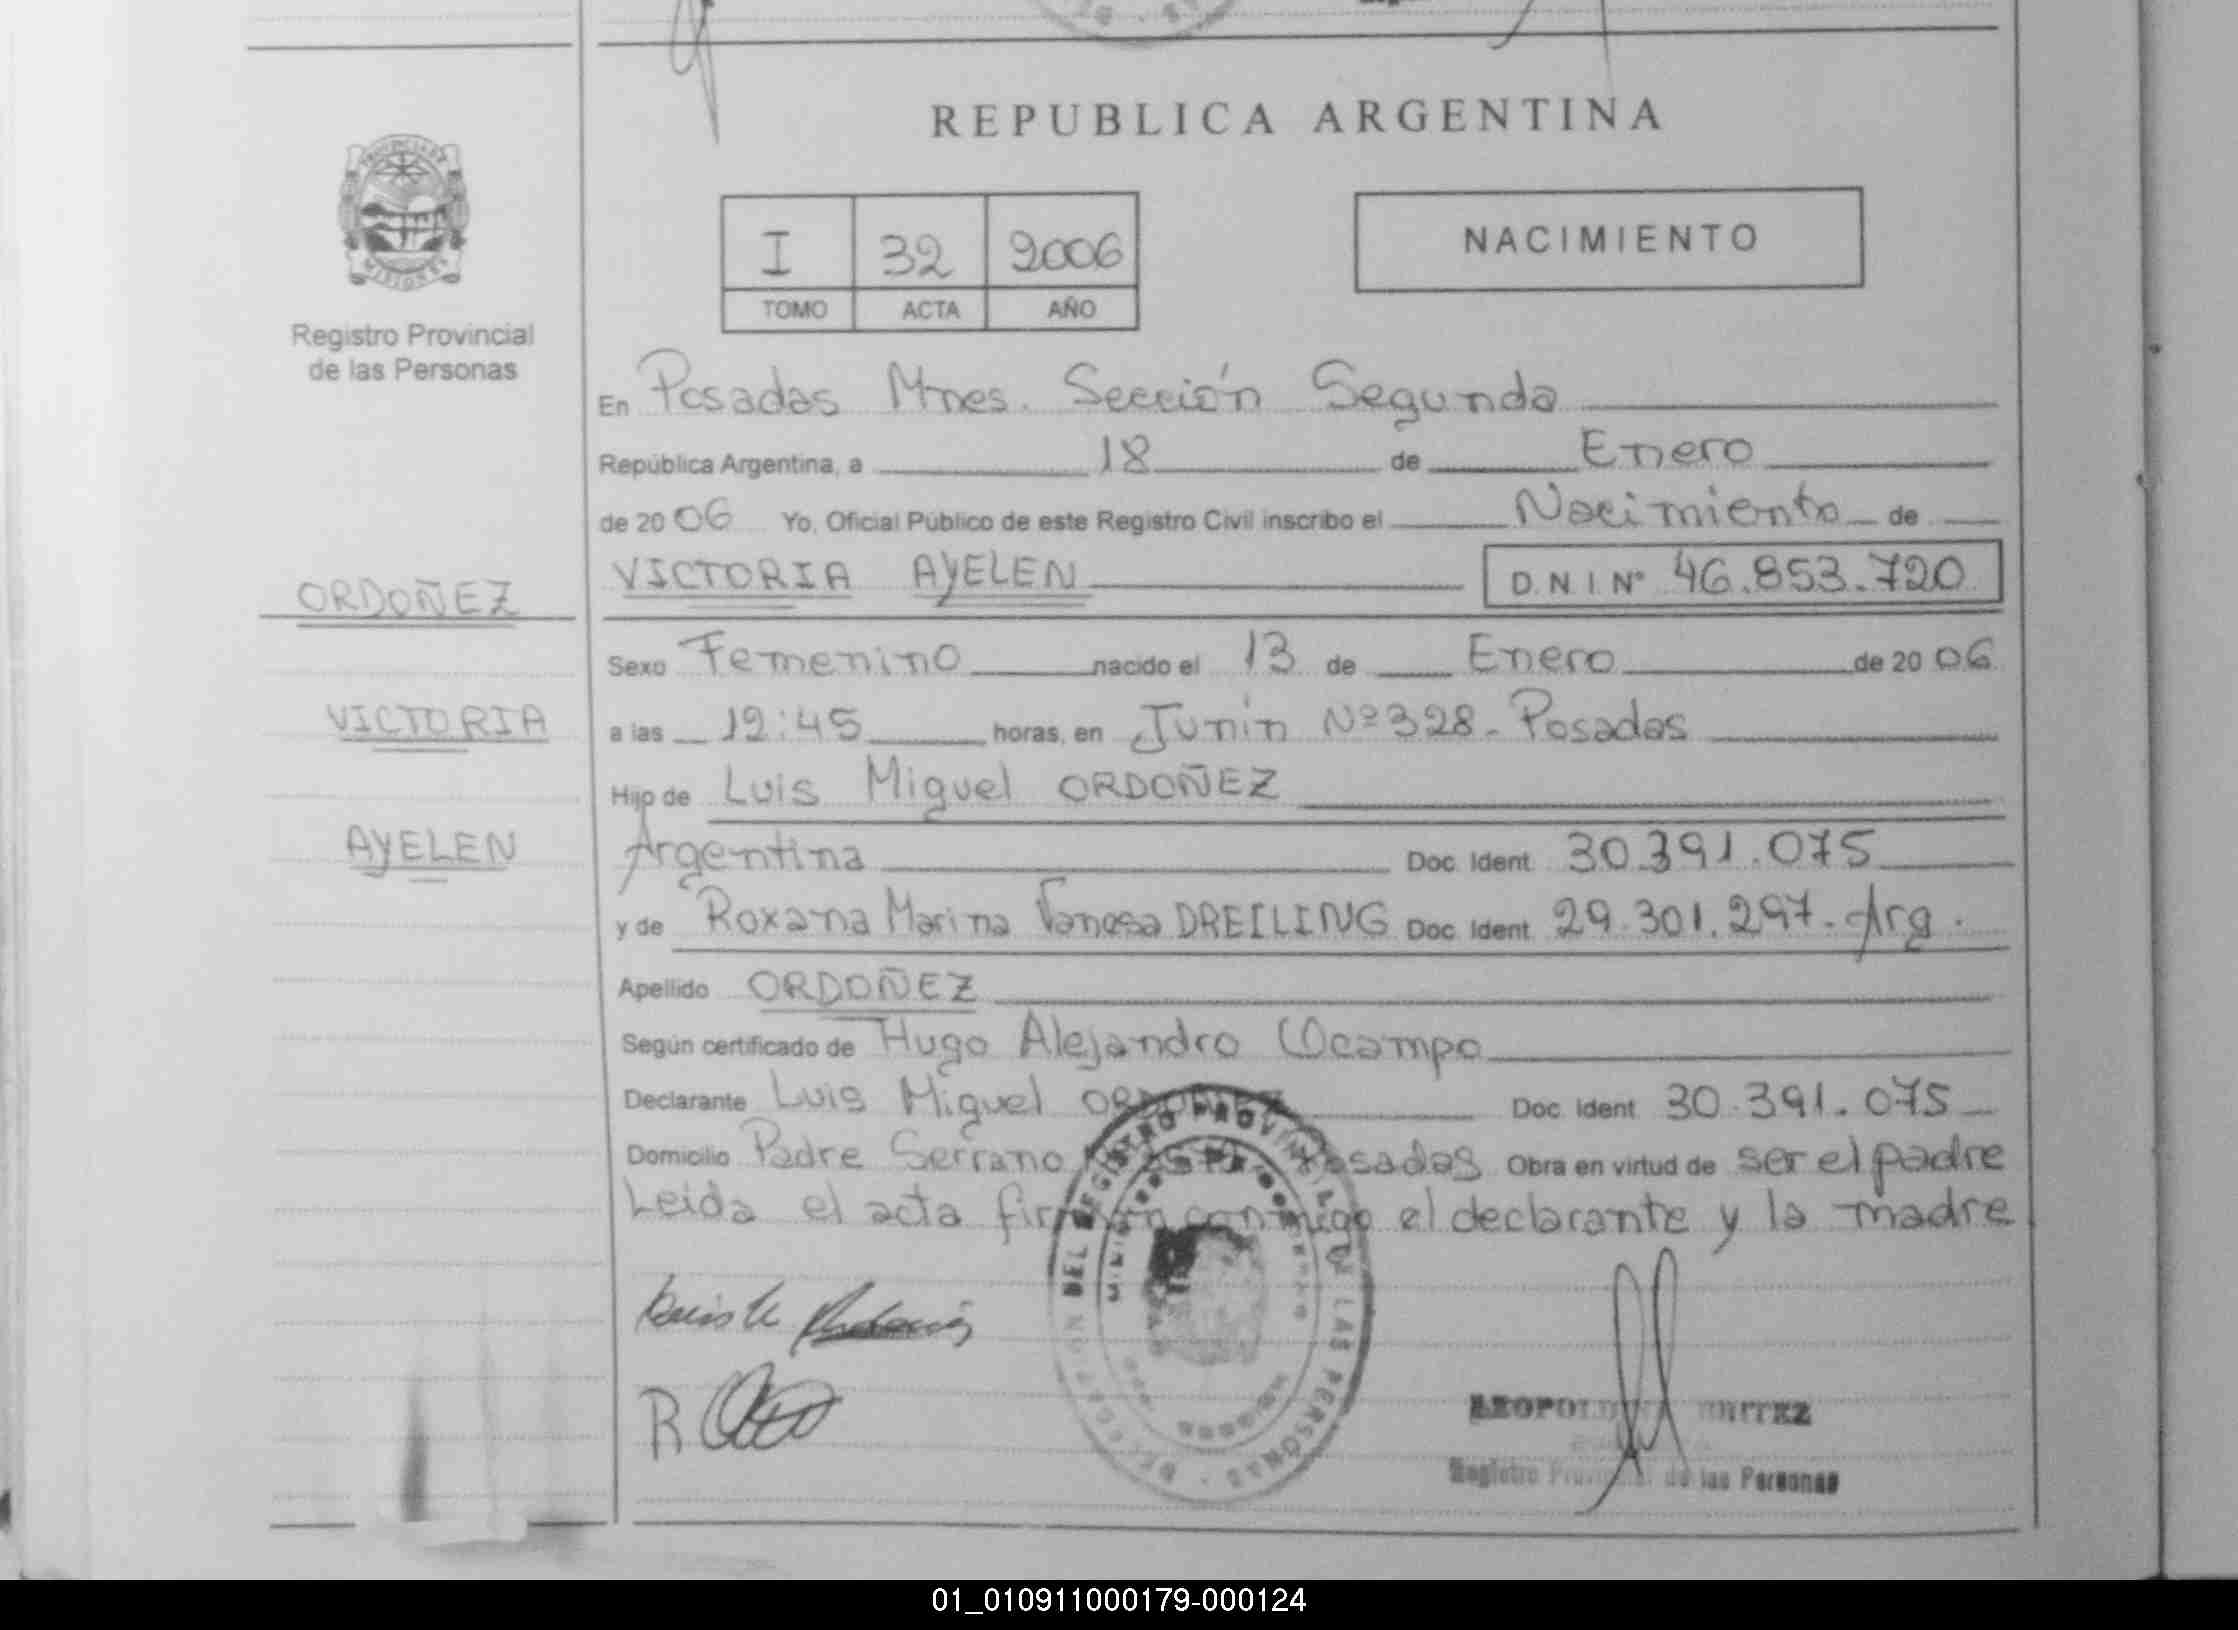 REPUBLICA ARGENTINA
PROVINCIA DE
MISIONES
Registro Provincial
de las Personas
I 32 2006
TOMO ACTA AÑO
NACIMIENTO
En Posadas Mnes. Sección Segunda
República Argentina, a 18 de Enero
de 2006 Yo, Oficial Público de este Registro Civil inscribo el Nacimiento de
VICTORIA AYELEN D.N.I. Nº 46.853.720
ORDOÑEZ
VICTORIA
AYELEN
Sexo Femenino nacido el 13 de Enero de 2006
a las 12:45 horas, en Junín Nº 328 - Posadas
Hijo de Luis Miguel ORDOÑEZ
Argentina Doc. Ident. 30.391.075
y de Roxana Marina Vanesa DREILING Doc. Ident. 29.301.297 - Arg.
Apellido ORDOÑEZ
Según certificado de Hugo Alejandro Ocampo
Declarante Luis Miguel ORDOÑEZ Doc. Ident. 30.391.075
Domicilio Padre Serrano Posadas Obra en virtud de ser el padre
Leida el acta firman conmigo el declarante y la madre
DELEGACION DEL REGISTRO PROVINCIAL DE LAS PERSONAS
Registro Provincial de las Personas
01_010911000179-000124